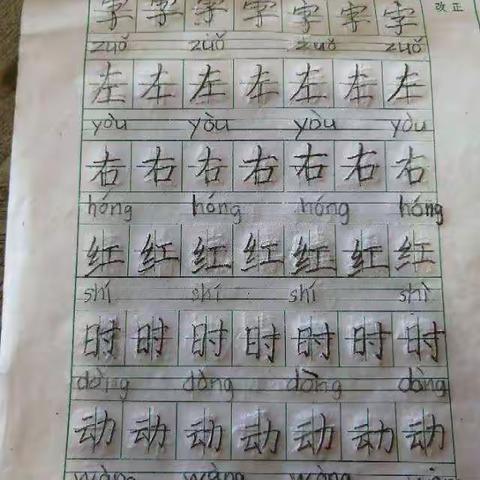 字 字 字 字 字 字 字 改正
zuǒ zuǒ zuǒ zuǒ
左 左 左 左 左 左 左
yòu yòu yòu yòu
右 右 右 右 右 右 右
hóng hóng hóng hóng
红 红 红 红 红 红 红
shí shí shí shì
时 时 时 时 时 时 时
dòng dòng dòng dòng
动 动 动 动 动 动 动
wàng wàng wàng